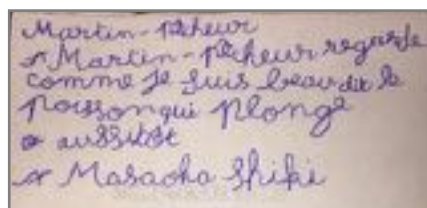 Martin-pêcheur
Martin-pêcheur regarde
comme je suis beau dit le
poisson qui plonge
aussitôt
Masaoka Shiki